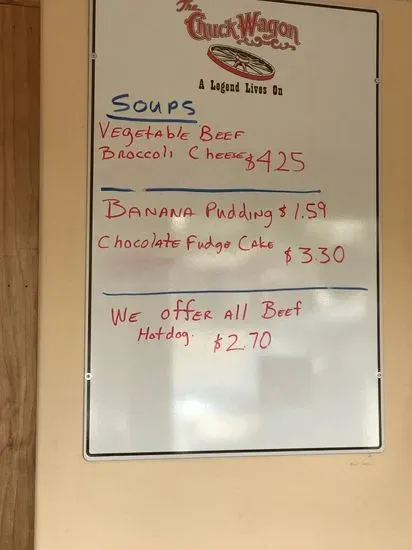 The
Chuck Wagon
A Legend Lives On
SOUPS
VEgEtAblE BEEF
BROCCOli CHEESE $425
BANANA Pudding $1.59
Chocolate Fudge Cake
$3.30
WE offER All BEEf
Hotdog. $2.70